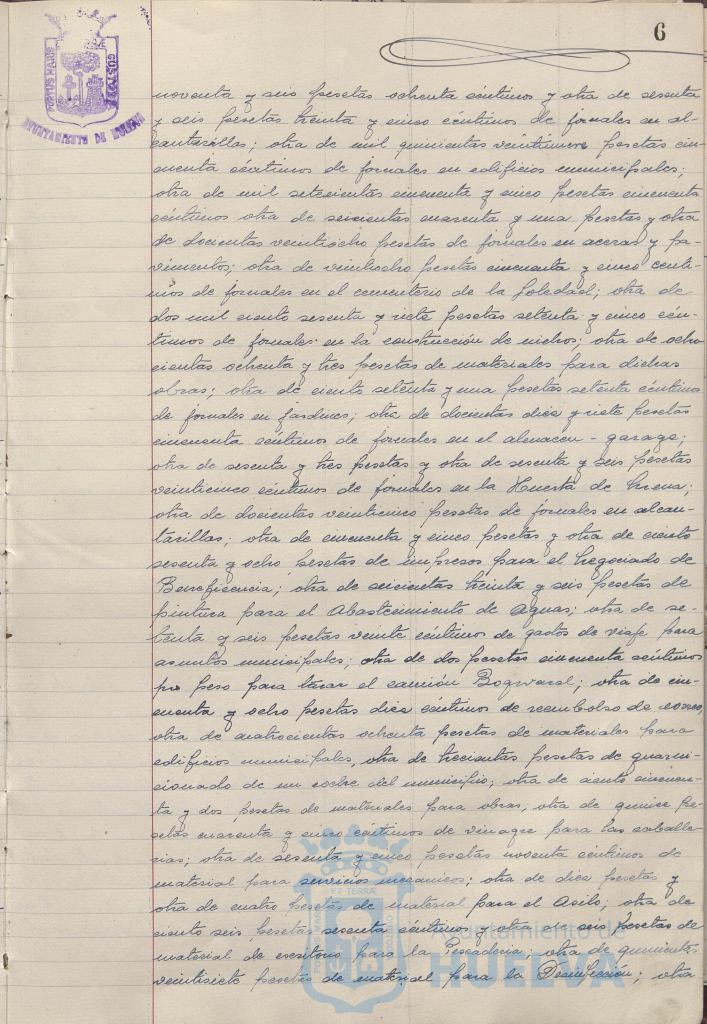 6
PORTUS MARIS
CUSTODIA
AYUNTAMIENTO DE HUELVA
noventa y seis pesetas ochenta céntimos y otra de sesenta
y seis pesetas treinta y cinco céntimos de jornales en al-
cantarillas; otra de mil quinientas veintinueve pesetas cin-
cuenta céntimos de jornales en edificios municipales;
otra de mil setecientas cincuenta y cinco pesetas cincuenta
céntimos otra de seiscientas cuarenta y una pesetas y otra
de docientas veintiocho pesetas de jornales en aceras y pa-
vimentos; otra de veintiocho pesetas cincuenta y cinco centi-
mos de jornales en el cementerio de la Soledad; otra de
dos mil ciento sesenta y siete pesetas setenta y cinco cén-
timos de jornales en la construcción de nichos; otra de ocho
cientas ochenta y tres pesetas de materiales para dichas
obras; otra de ciento setenta y una pesetas setenta céntimos
de jornales en jardines; otra de docientas diez y siete pesetas
cincuenta céntimos de jornales en el almacen-garage;
otra de sesenta y tres pesetas y otra de sesenta y seis pesetas
veinticinco céntimos de jornales en la Huerta de Mena;
otra de docientas veinticinco pesetas de jornales en alcan-
tarillas; otra de cincuenta y cinco pesetas y otra de ciento
sesenta y ocho pesetas de impresos para el Negociado de
Beneficencia; otra de seiscientas treinta y seis pesetas de
pintura para el Abastecimiento de Aguas; otra de se-
tenta y seis pesetas veinte céntimos de gastos de viaje para
asuntos municipales; otra de dos pesetas cincuenta céntimos
por peso para tarar el camión ; otra de cin-
cuenta y ocho pesetas diez centimos de reembolso de correo,
otra de cuatrocientas ochenta pesetas de materiales para
edificios municipales, otra de trecientas pesetas de guarni-
cionado de un coche del municipio; otra de ciento cincuen-
ta y dos pesetas de materiales para obras; otra de quince pe-
setas cuarenta y cinco céntimos de vinagre para las caballe-
rias; otra de sesenta y cinco pesetas noventa céntimos de
material para servicios mecanicos; otra de diez pesetas y
otra de cuatro pesetas de material para el Asilo; otra de
ciento seis pesetas sesenta céntimos y otra de seis pesetas de
material de escritorio para la Pescaderia; otra de quinientas
veintisiete pesetas de material para la Desinfección; otra
Ayuntamiento de
HUELVA